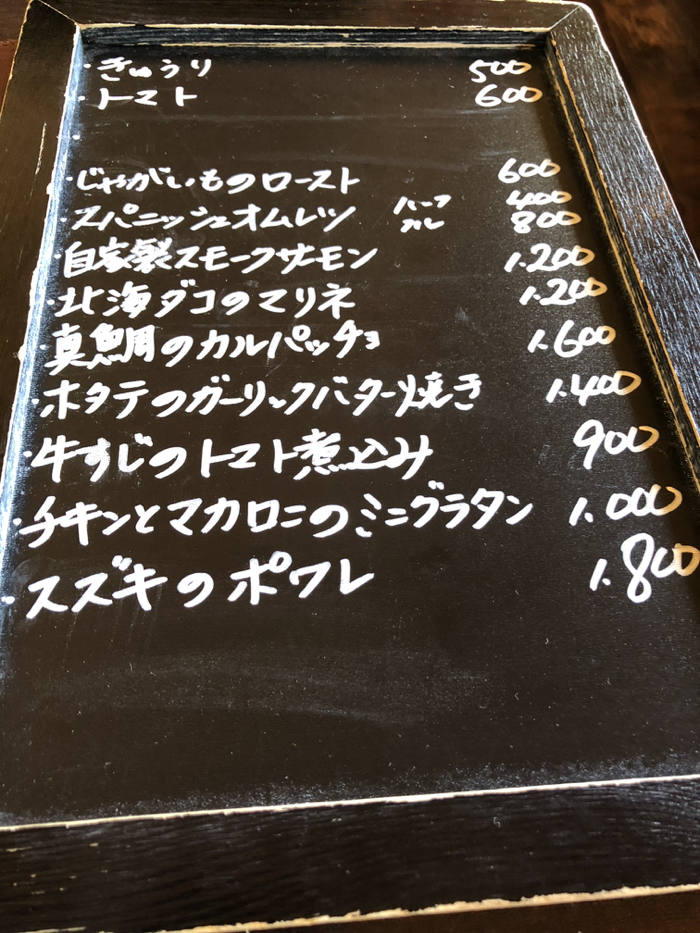 ・きゅうり 500
・トマト 600
・
・じゃがいものロースト 600
・スパニッシュオムレツ ハーフ 400
フル 800
・自家製スモークサーモン 1.200
・北海ダコのマリネ 1.200
・真鯛のカルパッチョ 1.600
・ホタテのガーリックバター焼き 1.400
・牛すじのトマト煮込み 900
・チキンとマカロニのミニグラタン 1.000
・スズキのポワレ 1.800